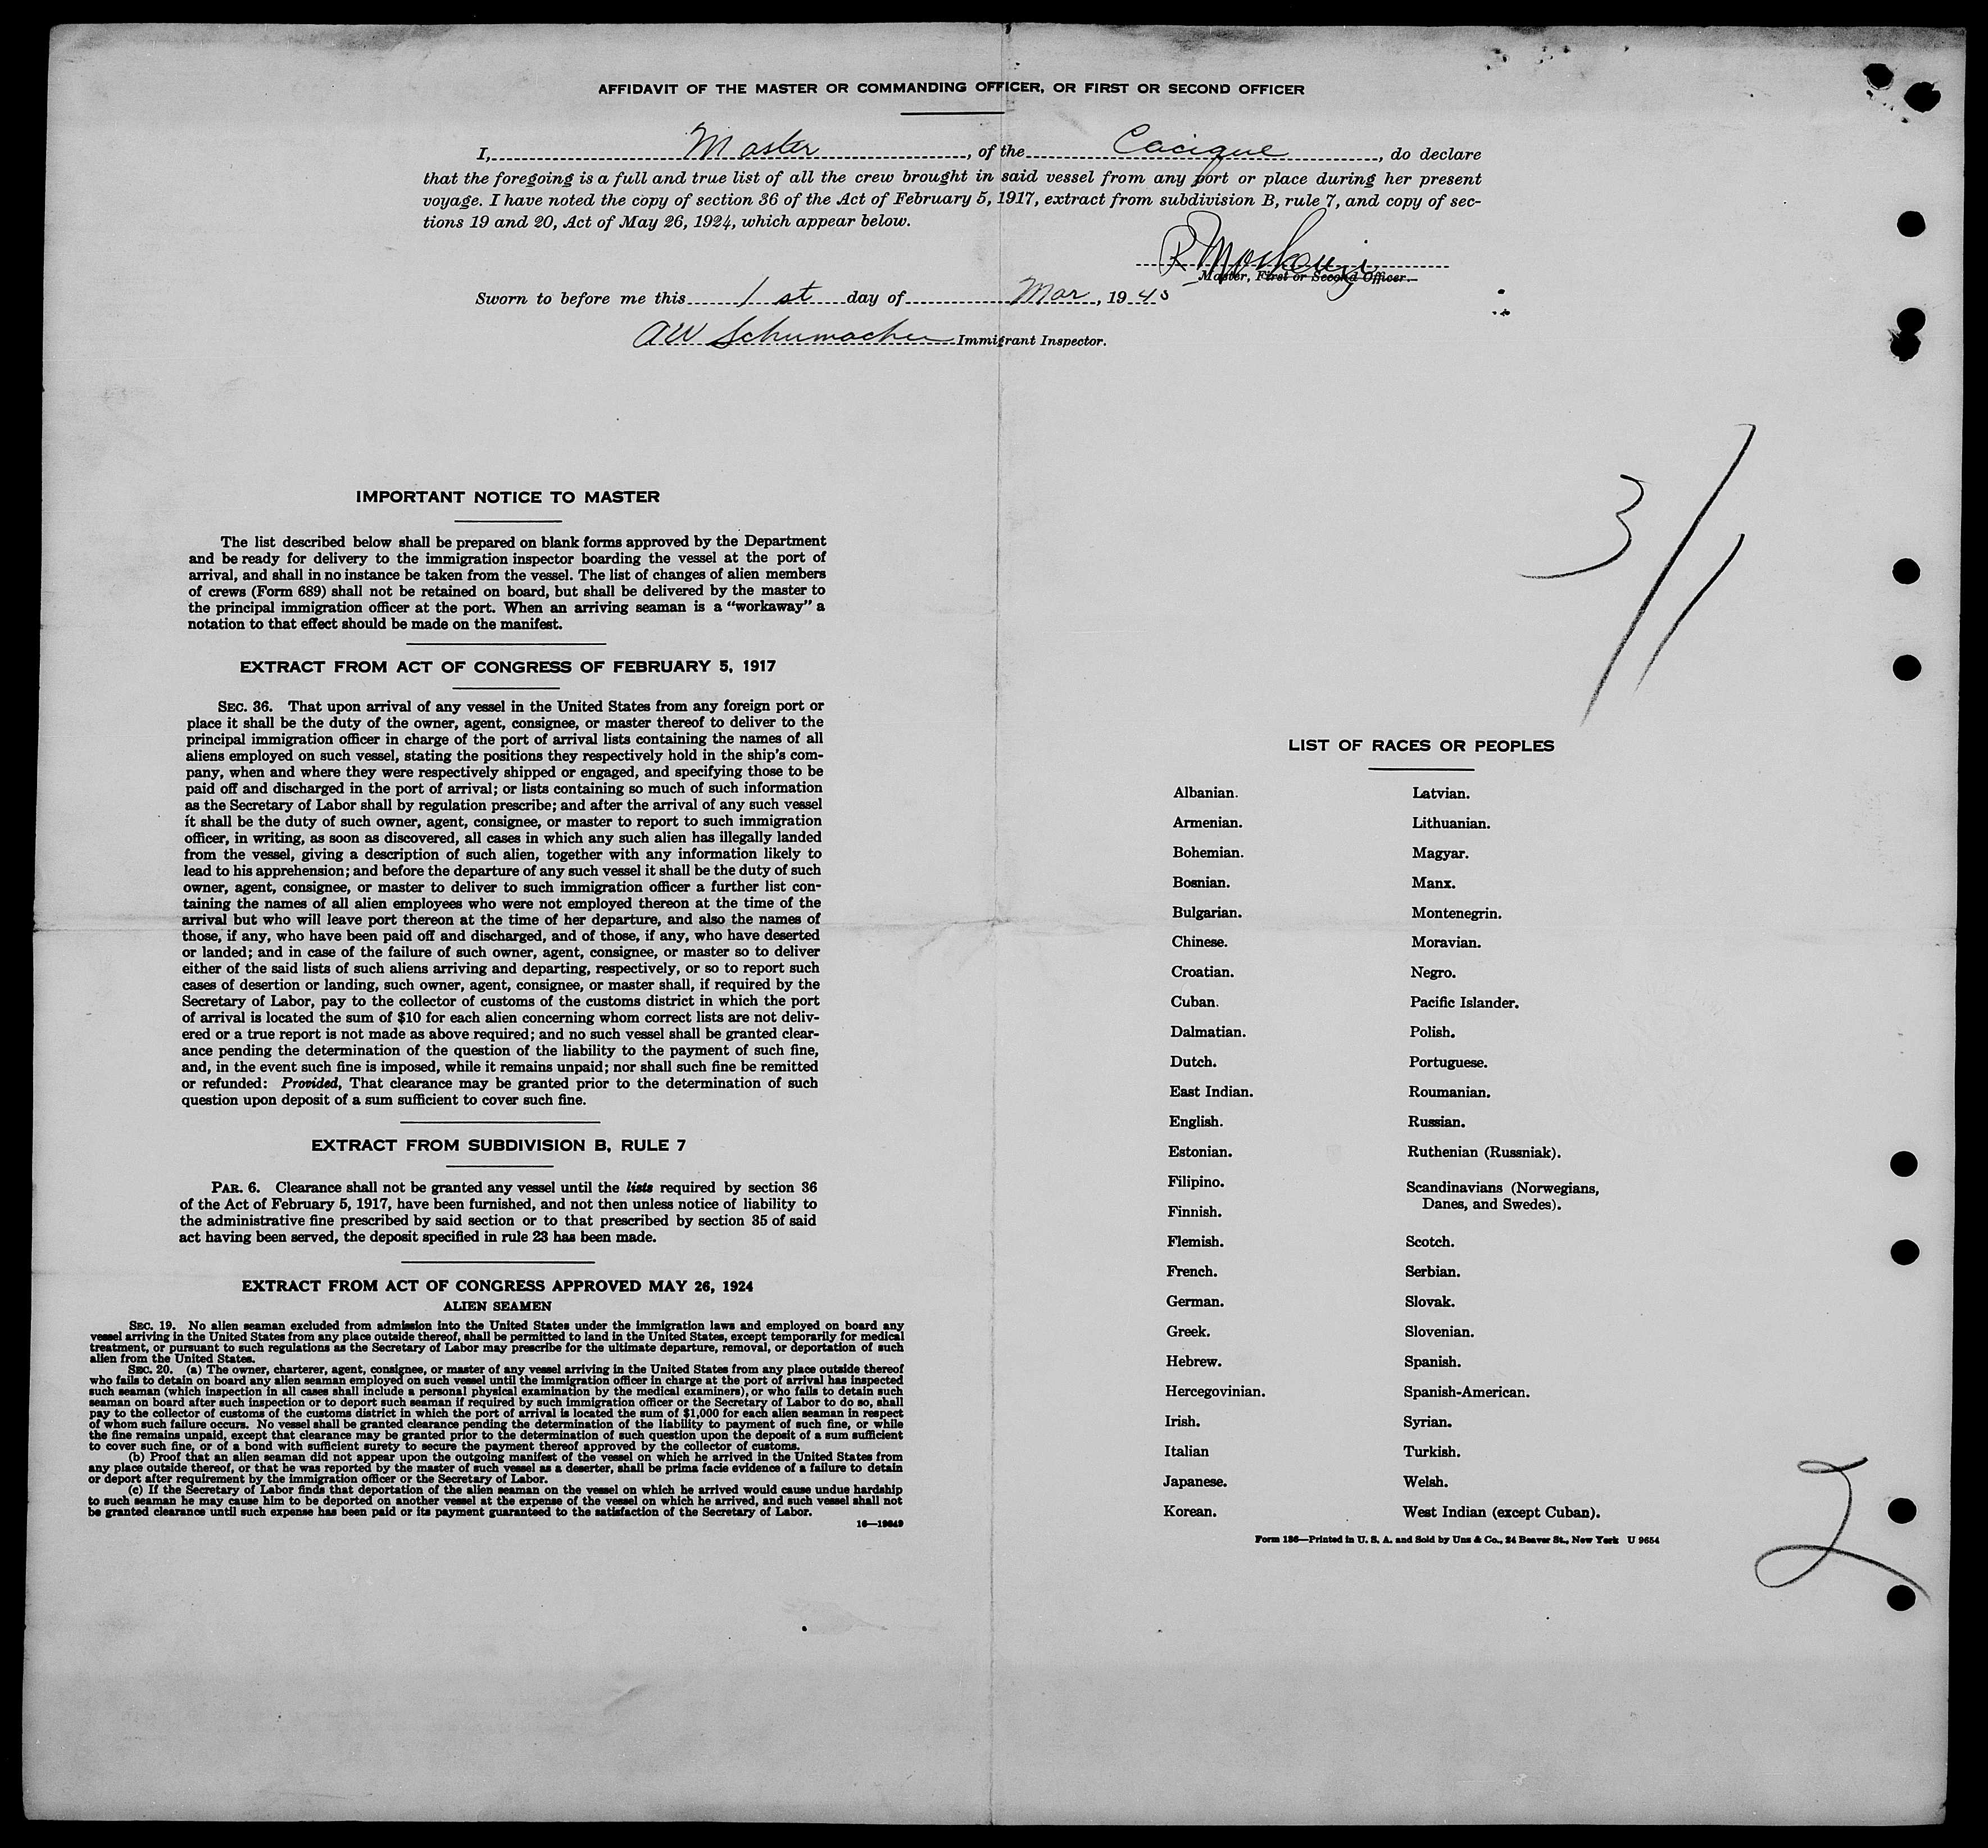 AFFIDAVIT OF THE MASTER OR COMMANDING OFFICER, OR FIRST OR SECOND OFFICER
I, Master, of the Cacique, do declare
that the foregoing is a full and true list of all the crew brought in said vessel from any port or place during her present
voyage. I have noted the copy of section 36 of the Act of February 5, 1917, extract from subdivision B, rule 7, and copy of sec-
tions 19 and 20, Act of May 26, 1924, which appear below.
R
Master, First or Second Officer.
Sworn to before me this 1 st day of Mar, 19
AW Schumacher Immigrant Inspector.
3/1
IMPORTANT NOTICE TO MASTER
The list described below shall be prepared on blank forms approved by the Department
and be ready for delivery to the immigration inspector boarding the vessel at the port of
arrival, and shall in no instance be taken from the vessel. The list of changes of alien members
of crews (Form 689) shall not be retained on board, but shall be delivered by the master to
the principal immigration officer at the port. When an arriving seaman is a "workaway" a
notation to that effect should be made on the manifest.
EXTRACT FROM ACT OF CONGRESS OF FEBRUARY 5, 1917
SEC. 36. That upon arrival of any vessel in the United States from any foreign port or
place it shall be the duty of the owner, agent, consignee, or master thereof to deliver to the
principal immigration officer in charge of the port of arrival lists containing the names of all
aliens employed on such vessel, stating the positions they respectively hold in the ship's com-
pany, when and where they were respectively shipped or engaged, and specifying those to be
paid off and discharged in the port of arrival; or lists containing so much of such information
as the Secretary of Labor shall by regulation prescribe; and after the arrival of any such vessel
it shall be the duty of such owner, agent, consignee, or master to report to such immigration
officer, in writing, as soon as discovered, all cases in which any such alien has illegally landed
from the vessel, giving a description of such alien, together with any information likely to
lead to his apprehension; and before the departure of any such vessel it shall be the duty of such
owner, agent, consignee, or master to deliver to such immigration officer a further list con-
taining the names of all alien employees who were not employed thereon at the time of the
arrival but who will leave port thereon at the time of her departure, and also the names of
those, if any, who have been paid off and discharged, and of those, if any, who have deserted
or landed; and in case of the failure of such owner, agent, consignee, or master so to deliver
either of the said lists of such aliens arriving and departing, respectively, or so to report such
cases of desertion or landing, such owner, agent, consignee, or master shall, if required by the
Secretary of Labor, pay to the collector of customs of the customs district in which the port
of arrival is located the sum of $10 for each alien concerning whom correct lists are not deliv-
ered or a true report is not made as above required; and no such vessel shall be granted clear-
ance pending the determination of the question of the liability to the payment of such fine,
and, in the event such fine is imposed, while it remains unpaid; nor shall such fine be remitted
or refunded: Provided, That clearance may be granted prior to the determination of such
question upon deposit of a sum sufficient to cover such fine.
EXTRACT FROM SUBDIVISION B, RULE 7
PAR. 6. Clearance shall not be granted any vessel until the lists required by section 36
of the Act of February 5, 1917, have been furnished, and not then unless notice of liability to
the administrative fine prescribed by said section or to that prescribed by section 35 of said
act having been served, the deposit specified in rule 23 has been made.
EXTRACT FROM ACT OF CONGRESS APPROVED MAY 26, 1924
ALIEN SEAMEN
SEC. 19. No alien seaman excluded from admission into the United States under the immigration laws and employed on board any
vessel arriving in the United States from any place outside thereof, shall be permitted to land in the United States, except temporarily for medical
treatment, or pursuant to such regulations as the Secretary of Labor may prescribe for the ultimate departure, removal, or deportation of such
alien from the United States.
SEC. 20. (a) The owner, charterer, agent, consignee, or master of any vessel arriving in the United States from any place outside thereof
who fails to detain on board any alien seaman employed on such vessel until the immigration officer in charge at the port of arrival has inspected
such seaman (which inspection in all cases shall include a personal physical examination by the medical examiners), or who fails to detain such
seaman on board after such inspection or to deport such seaman if required by such immigration officer or the Secretary of Labor to do so, shall
pay to the collector of customs of the customs district in which the port of arrival is located the sum of $1,000 for each alien seaman in respect
of whom such failure occurs. No vessel shall be granted clearance pending the determination of the liability to payment of such fine, or while
the fine remains unpaid, except that clearance may be granted prior to the determination of such question upon the deposit of a sum sufficient
to cover such fine, or of a bond with sufficient surety to secure the payment thereof approved by the collector of customs.
(b) Proof that an alien seaman did not appear upon the outgoing manifest of the vessel on which he arrived in the United States from
any place outside thereof, or that he was reported by the master of such vessel as a deserter, shall be prima facie evidence of a failure to detain
or deport after requirement by the immigration officer or the Secretary of Labor.
(c) If the Secretary of Labor finds that deportation of the alien seaman on the vessel on which he arrived would cause undue hardship
to such seaman he may cause him to be deported on another vessel at the expense of the vessel on which he arrived, and such vessel shall not
be granted clearance until such expense has been paid or its payment guaranteed to the satisfaction of the Secretary of Labor.
16—19849
LIST OF RACES OR PEOPLES
Albanian.
Armenian.
Bohemian.
Bosnian.
Bulgarian.
Chinese.
Croatian.
Cuban.
Dalmatian.
Dutch.
East Indian.
English.
Estonian.
Filipino.
Finnish.
Flemish.
French.
German.
Greek.
Hebrew.
Hercegovinian.
Irish.
Italian
Japanese.
Korean.
Latvian.
Lithuanian.
Magyar.
Manx.
Montenegrin.
Moravian.
Negro.
Pacific Islander.
Polish.
Portuguese.
Roumanian.
Russian.
Ruthenian (Russniak).
Scandinavians (Norwegians,
Danes, and Swedes).
Scotch.
Serbian.
Slovak.
Slovenian.
Spanish.
Spanish-American.
Syrian.
Turkish.
Welsh.
West Indian (except Cuban).
Form 136—Printed in U. S. A. and Sold by Unz & Co., 24 Beaver St., New York U 9654
2